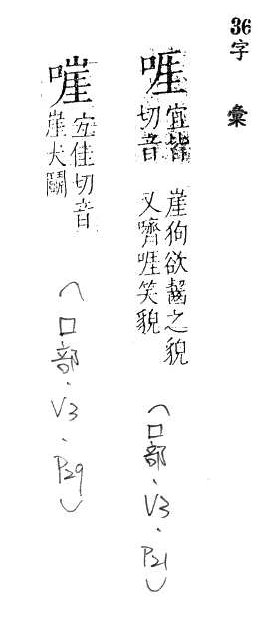 36字彙
啀
宜皆
切音
崖狗欲齧之貌
又嚌啀笑貌
(口部.V3.P21)
嘊
宜佳切音
崖犬鬭
(口部.V3.P29)